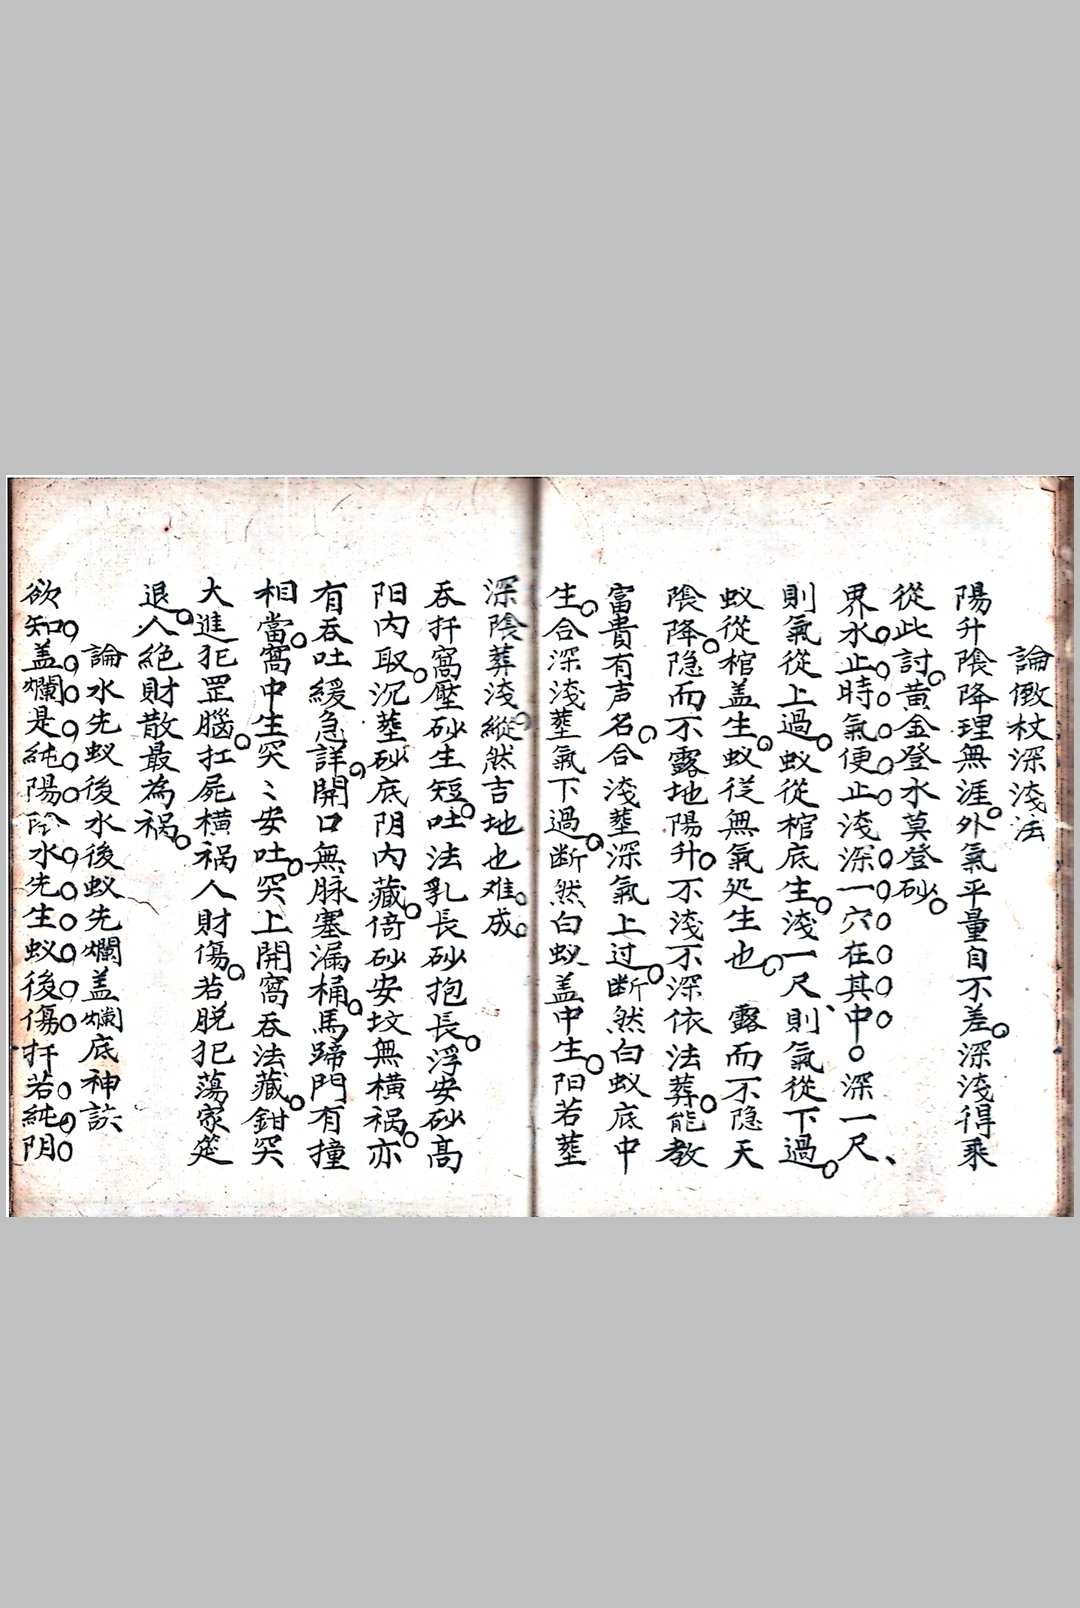 論倒杖深淺法
陽升陰降理無涯。外氣平量自不差。深淺得乘
從此討。黃金登水莫登砂。
界水止時氣便止淺深一穴在其中。深一尺、
則氣從上過。蚁從棺底生。淺一尺、則氣從下過。
蚁從棺盖生。蚁従無氣処生也。 露而不隐天
陰降。隐而不露地陽升。不淺不深依法葬。能教
富貴有声名。合淺塟深氣上过。断然白蚁底中
生。合深淺塟氣下過。断然白蚁盖中生。阳若塟
深陰葬淺。縱然吉地也难。成。
吞扞窩壓砂生短。吐法乳長砂抱長。浮安砂高
阳内取。沉塟砂底阴内藏。倚砂安坟無横祸。亦
有吞吐緩急詳。開口無脉塞漏桶。馬蹄門有撞
相當。窩中生突〻安吐。突上開窩吞法藏。鉗突
大進犯罡腦。扛屍横祸人財傷。若脱犯蕩家筵
退。人絶財散最為祸。
論水先蚁後水後蚁先爛盖爛底神訣
欲知盖爛是純陽陰水先生蚁後傷扦若純阴